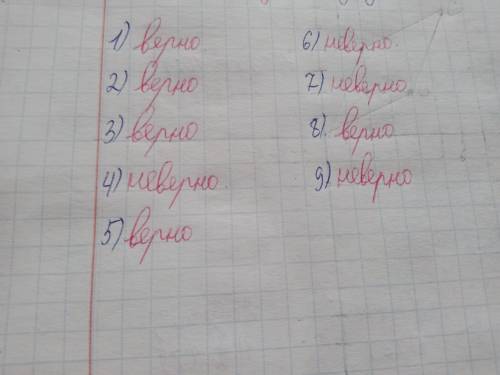 1) верно
2) верно
3) верно
4) неверно
5) верно
6) неверно.
7) неверно
8) верно
9) неверно